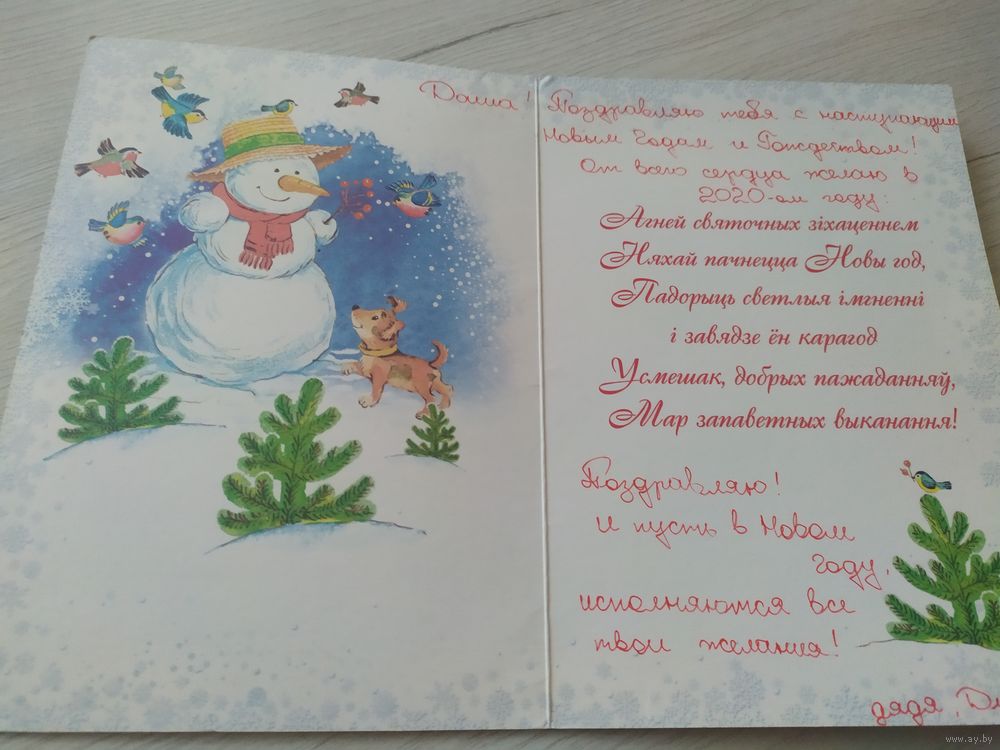 Даша! Поздравляю тебя с наступающим
Новым Годам и Рождеством!
От всего сердца желаю в
2020-ом году:
Агней святочных зіхаценнем
Няхай пачнецца Новы год,
Падорыць светлыя імгненні
і завядзе ён карагод
Усмешак, добрых пажаданняў,
Мар запаветных выканання!
Поздравляю!
И пусть в Новом
году,
исполняются все
твои желания!
дядя,
www.ay.by